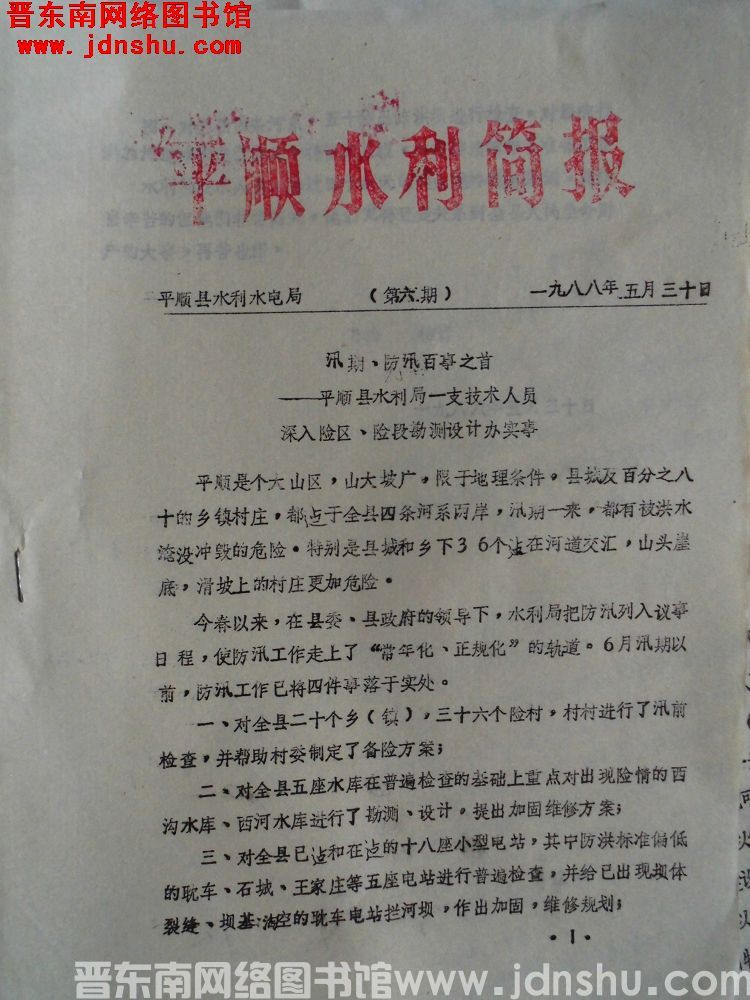 晋东南网络图书馆
www.jdnshu.com
平顺水利简报
平顺县水利水电局 （第六期） 一九八八年五月三十日
汛期、防汛百事之首
——平顺县水利局一支技术人员
深入险区、险段勘测设计办实事
平顺是个大山区，山大坡广，限于地理条件。县城及百分之八
十的乡镇村庄，都占于全县四条河系两岸，汛期一来，都有被洪水
淹没冲毁的危险。特别是县城和乡下36个站在河道交汇，山头崖
底，滑坡上的村庄更加危险。
今春以来，在县委、县政府的领导下，水利局把防汛列入议事
日程，使防汛工作走上了“常年化、正规化”的轨道。6月汛期以
前，防汛工作已将四件事落于实处。
一、对全县二十个乡（镇），三十六个险村，村村进行了汛前
检查，并帮助村委制定了备险方案；
二、对全县五座水库在普遍检查的基础上重点对出现险情的西
沟水库、西河水库进行了勘测、设计，提出加固维修方案；
三、对全县已和在的十八座小型电站，其中防洪标准偏低
的耽车、石城、王家庄等五座电站进行普遍检查，并给已出现坝体
裂缝、坝基淘空的耽车电站拦河坝，作出加固，维修规划；
·1·
晋东南网络图书馆www.jdnshu.com